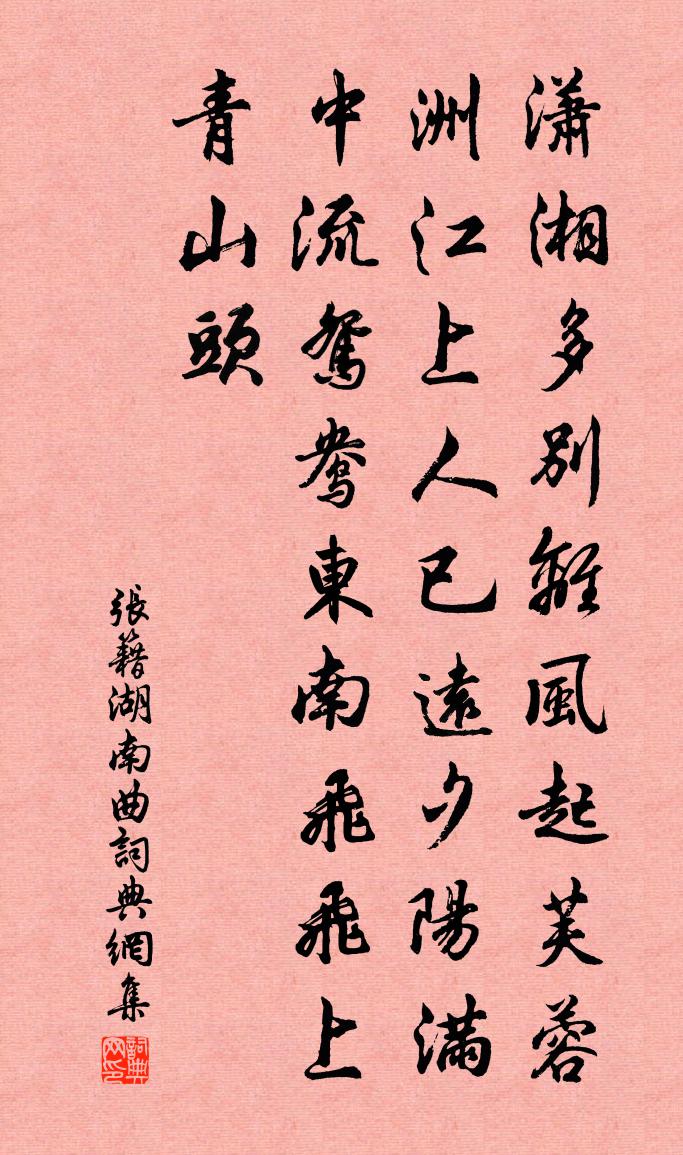 瀟湘多別離風起芙蓉
洲江上人已遠夕陽滿
中流鴛鴦東南飛飛上
青山頭
張籍湖南曲詞典網集
詞典网印